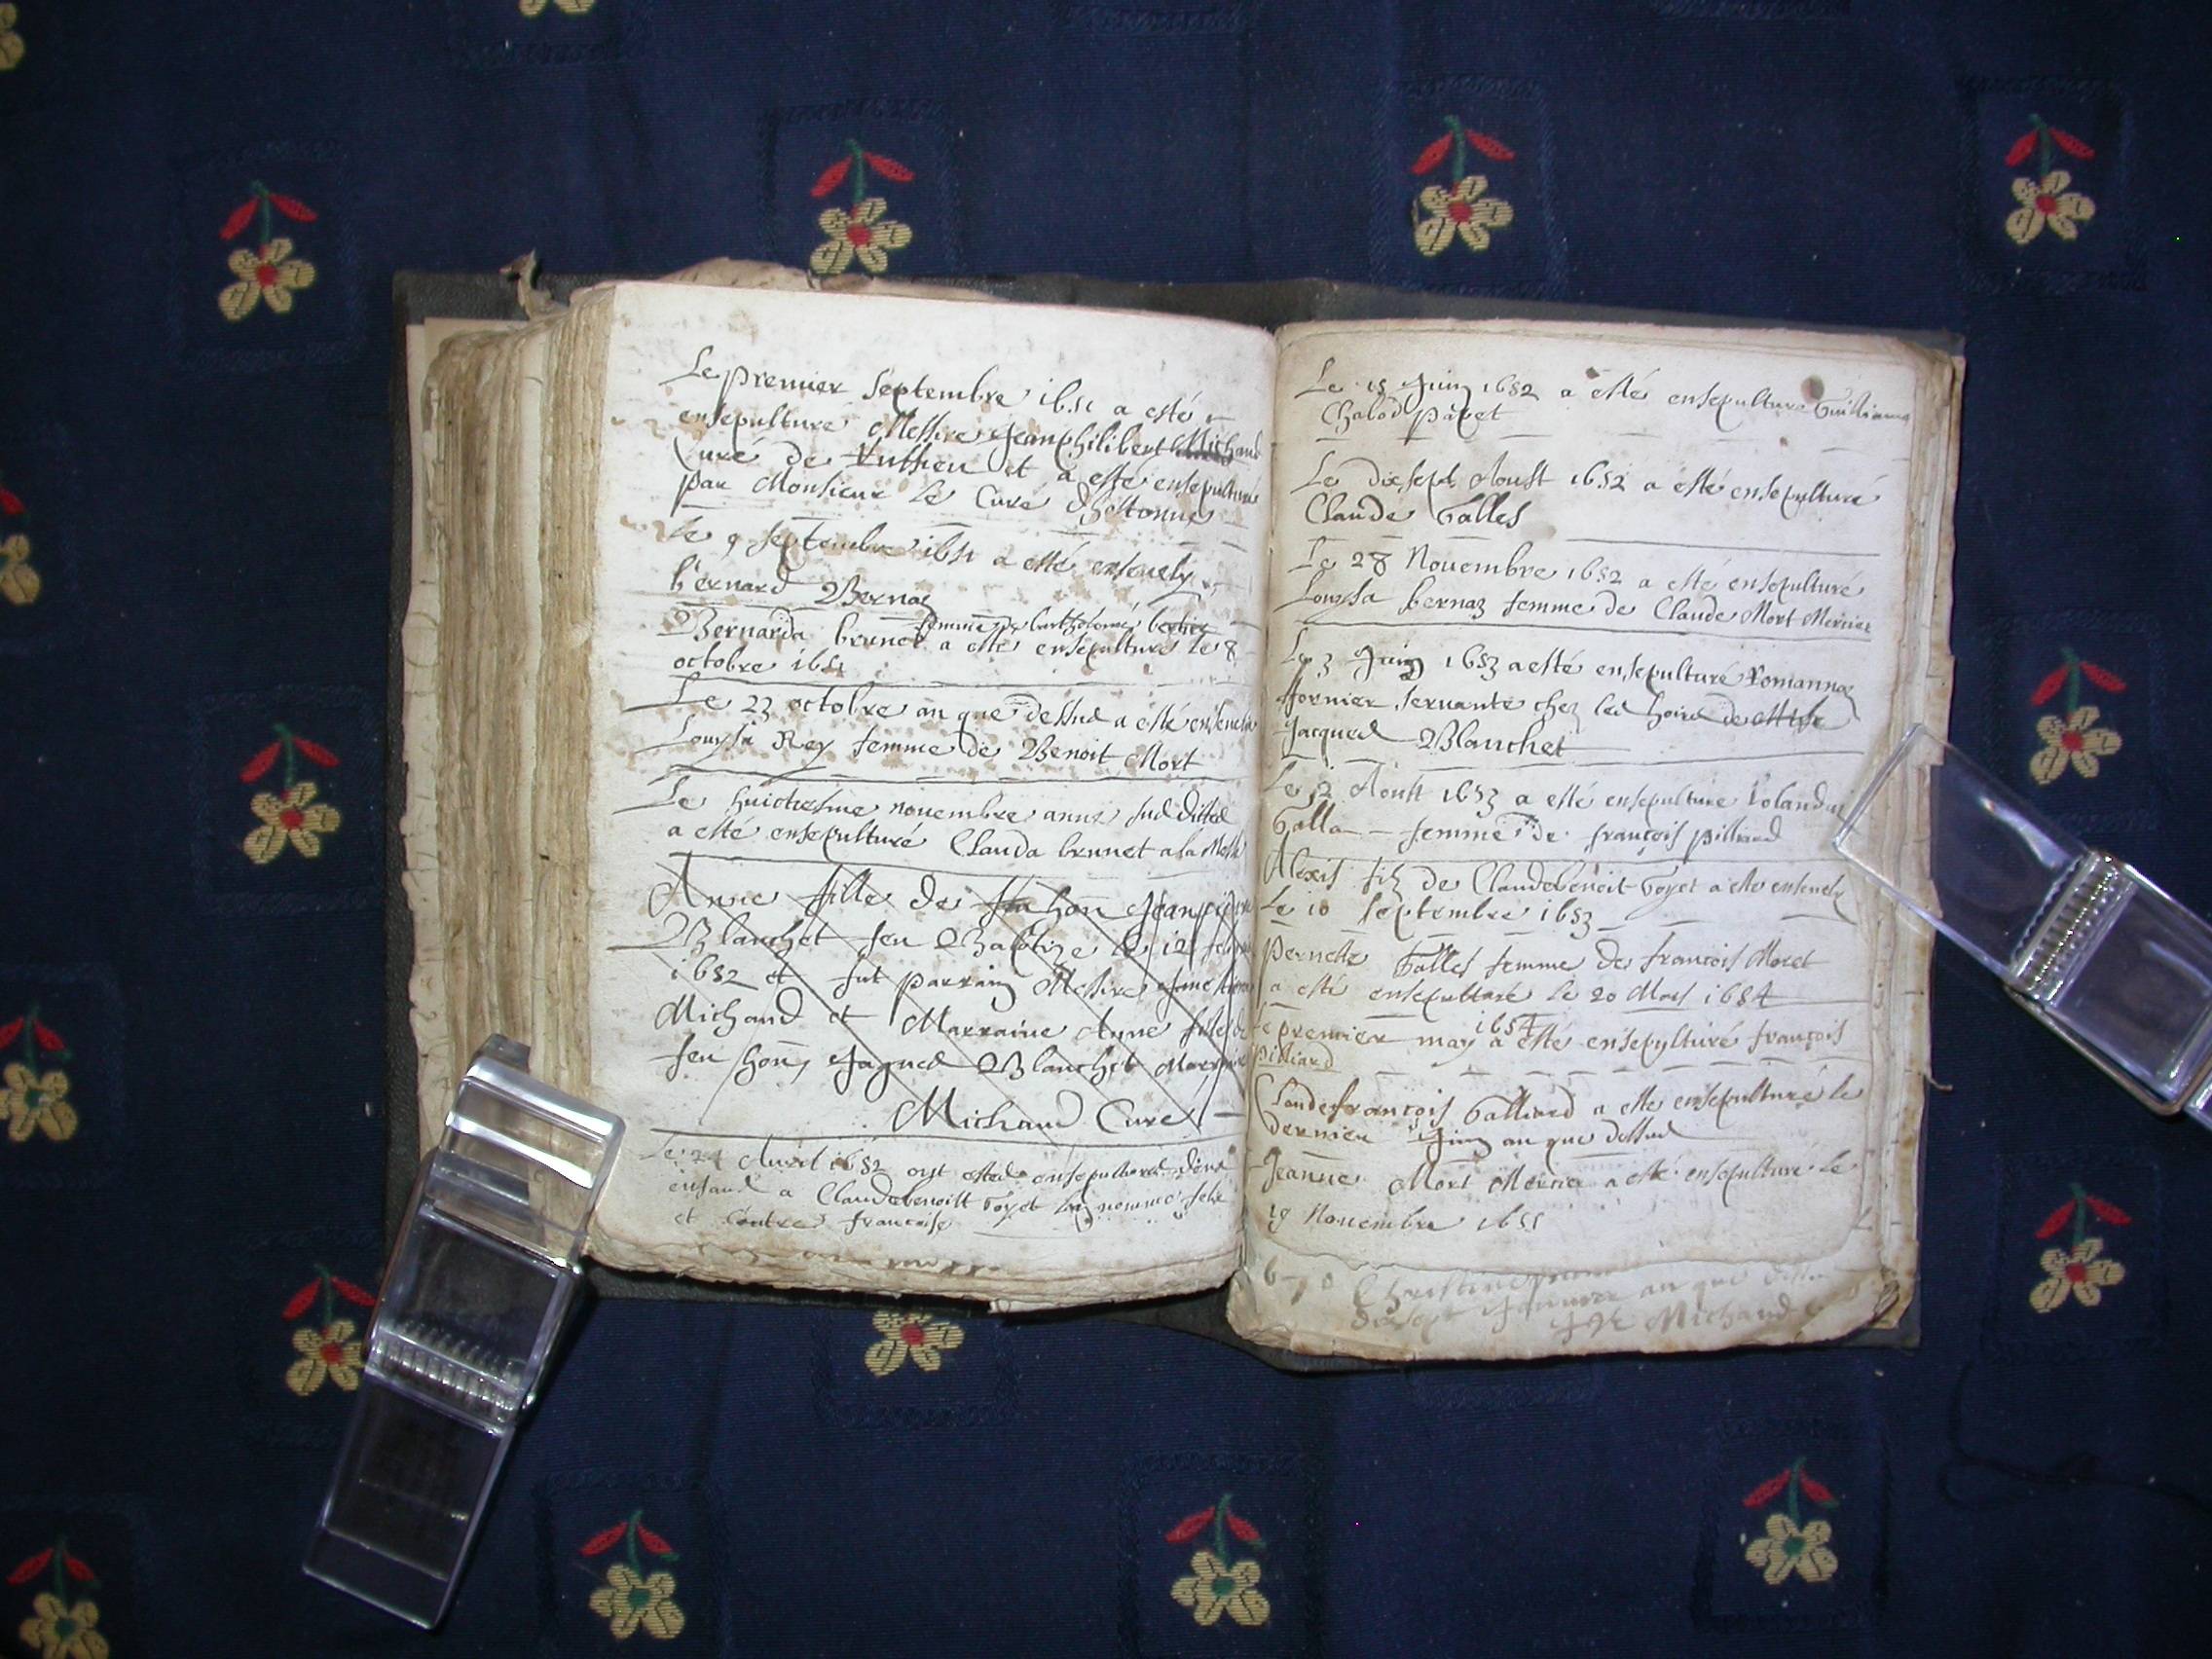 Le premier septembre 1651 a esté
ensepulturé Messire Jeanphilibert Michaud
Curé de et a esté ensepulturé
par Monsieur le Curé
Le 9 septembre 1651 a esté enseuely
bernard Bernaz
femme de bartholomé
Bernarda brunet a esté ensepulturé le 8
octobre 1651
Le 23 octobre an que dessud a esté enseuelie
Louysa Rey femme de Benoit Mort
Le huictiesme nouembre anné sud ditted
a esté ensepulturé Clauda brunet a la
Anne fille de hon
Blanchet feu Baptize le 12
1652 et fut parrain Messire
Michaud et Marraine Anne fille de
feu hon Jaqued Blanchet
Michaud Curé
Le 24 Auril 1652 ont ested ensepultured
enfand a Claudebenoitt Goyet nommé
et l'autre francoise
Le 15 Juin 1652 a esté ensepulturé Guilliaume
Chalod Papet
Le dixsept Aoust 1652 a esté ensepulturé
Claude Galles
Le 28 Nouembre 1652 a esté ensepulturé
Louysa bernaz femme de Claude Mort Mercier
Le 3 Juin 1653 a esté ensepulturé Romannaz
fornier seruante chez led hoird de
Jacqued Blanchet
Le 12 Aoust 1653 a esté ensepulturé
Galla femme de françois pilliard
Alexis filz de Claudebenoit Goyet a esté enseuely
Le 10 septembre 1653
pernette Galles femme de francois Moret
a esté ensepulturé le 20 Mars 1654
1654
Le premier may a esté ensepulturé françois
pilliard
Claudefrançois Galliard a esté ensepulturé le
dernier Juin an que dessud
Jeanne Mort Mercier a esté ensepulturé le
19 Nouembre 1655
Christine
dixsept Januier an que
Michaud